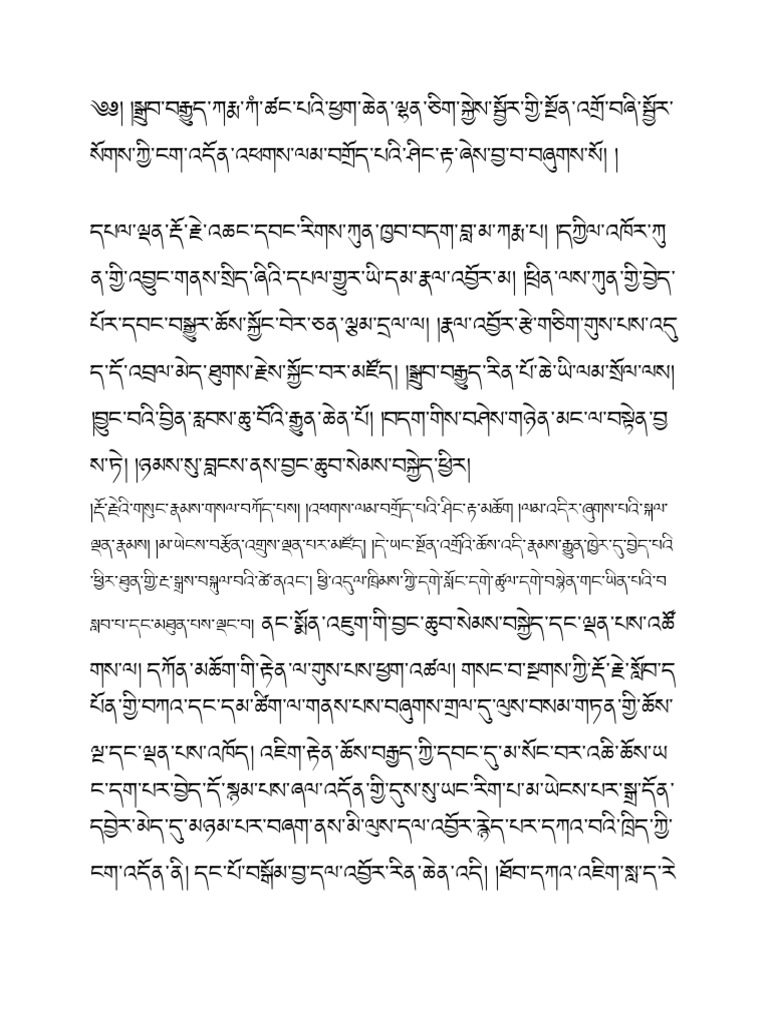 ༄༅། །སྒྲུབ་བརྒྱུད་ཀརྨ་ཀཾ་ཚང་པའི་ཕྱག་ཆེན་ལྷན་ཅིག་སྐྱེས་སྦྱོར་གྱི་སྔོན་འགྲོ་བཞི་སྦྱོར་
སོགས་ཀྱི་ངག་འདོན་འཕགས་ལམ་བགྲོད་པའི་ཤིང་རྟ་ཞེས་བྱ་བ་བཞུགས་སོ། །
དཔལ་ལྡན་རྡོ་རྗེ་འཆང་དབང་རིགས་ཀུན་ཁྱབ་བདག་བླ་མ་ཀརྨ་པ། །དཀྱིལ་འཁོར་ཀུ
ན་གྱི་འབྱུང་གནས་སྲིད་ཞིའི་དཔལ་གྱུར་ཡི་དམ་རྣལ་འབྱོར་མ། །ཕྲིན་ལས་ཀུན་གྱི་བྱེད་
པོར་དབང་བསྒྱུར་ཆོས་སྐྱོང་བེར་ཅན་ལྕམ་དྲལ་ལ། །རྣལ་འབྱོར་རྩེ་གཅིག་གུས་པས་འདུ
ད་དོ་འབྲལ་མེད་ཐུགས་རྗེས་སྐྱོང་བར་མཛོད། །སྒྲུབ་བརྒྱུད་རིན་པོ་ཆེ་ཡི་ལམ་སྲོལ་ལས།
།བྱུང་བའི་བྱིན་རླབས་ཆུ་བོའི་རྒྱུན་ཆེན་པོ། །བདག་གིས་བཤེས་གཉེན་མང་ལ་བསྟེན་བྱ
ས་ཏེ། །ཉམས་སུ་བླངས་ནས་བྱང་ཆུབ་སེམས་བསྐྱེད་ཕྱིར།
།རྡོ་རྗེའི་གསུང་རྣམས་གསལ་བཀོད་པས། །འཕགས་ལམ་བགྲོད་པའི་ཤིང་རྟ་མཆོག །ལམ་འདིར་ཞུགས་པའི་སྐལ་
ལྡན་རྣམས། །མ་ཡེངས་བརྩོན་འགྲུས་ལྡན་པར་མཛོད། །དེ་ཡང་སྔོན་འགྲོའི་ཆོས་འདི་རྣམས་རྒྱུན་ཁྱེར་དུ་བྱེད་པའི
་ཕྱིར་ཐུན་གྱི་རྔ་སྒྲས་བསྐུལ་བའི་ཚེ་ནའང་། ཕྱི་འདུལ་ཁྲིམས་ཀྱི་དགེ་སློང་དགེ་ཚུལ་དགེ་བསྙེན་གང་ཡིན་པའི་བ
སླབ་པ་དང་མཐུན་པས་ལྡང་བ། ནང་སྨོན་འཇུག་གི་བྱང་ཆུབ་སེམས་བསྐྱེད་དང་ལྡན་པས་འཚོ
གས་ལ། དཀོན་མཆོག་གི་རྟེན་ལ་གུས་པས་ཕྱག་འཚལ། གསང་བ་སྔགས་ཀྱི་རྡོ་རྗེ་སློབ་ད
པོན་གྱི་བཀའ་དང་དམ་ཚིག་ལ་གནས་པས་བཞུགས་གྲལ་དུ་ལུས་བསམ་གཏན་གྱི་ཆོས་
ལྔ་དང་ལྡན་པས་འཁོད། འཇིག་རྟེན་ཆོས་བརྒྱད་ཀྱི་དབང་དུ་མ་སོང་བར་འཆི་ཆོས་ཡ
ང་དག་པར་བྱེད་དོ་སྙམ་པས་ཞལ་འདོན་གྱི་དུས་སུ་ཡང་རིག་པ་མ་ཡེངས་པར་སྒྲ་དོན་
དབྱེར་མེད་དུ་མཉམ་པར་བཞག་ནས་མི་ལུས་དལ་འབྱོར་རྙེད་པར་དཀའ་བའི་ཁྲིད་ཀྱི་
ངག་འདོན་ནི། དང་པོ་བསྒོམ་བྱ་དལ་འབྱོར་རིན་ཆེན་འདི། །ཐོབ་དཀའ་འཇིག་སླ་ད་རེ